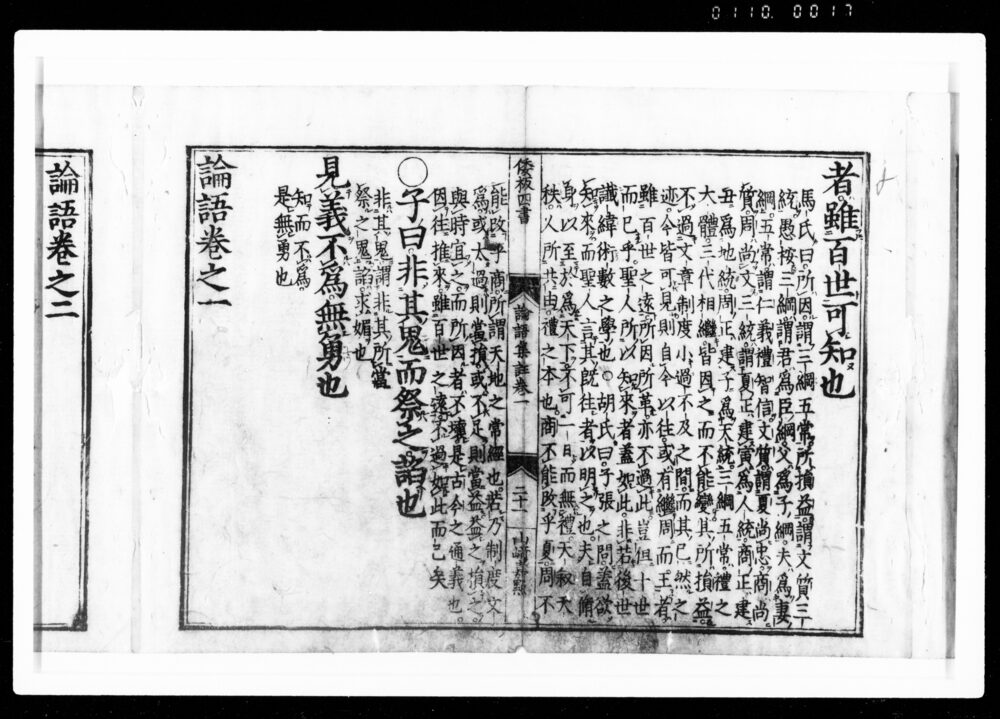 0110. 0017
者雖百世可知也
馬氏曰所因謂三綱五常所損益謂文質三
統愚按三綱謂君爲臣綱父爲子綱夫爲妻
綱五常謂仁義禮智信文質謂夏尚忠商尚
質周尚文三統謂夏正建寅爲人統商正建
丑爲地統周正建子爲天統三綱五常禮之
大體三代相繼皆因之而不能變其所損益
不過文章制度小過不及之間而其已然之
迹今皆可見則自今以往或有繼周而王者
雖百世之遠所因所革亦不過此豈但十世
而已乎聖人所以知來者蓋如此非若後世
讖緯術數之學也○胡氏曰子張之問蓋欲
知來而聖人言其既往者以明之也夫自脩
身以至於爲天下不可一日而無禮天叙天
秩人所共由禮之本也商不能改乎夏周不
倭板四書
論語集註卷一
二十一
山﨑嘉點
能改乎商所謂天地之常經也若乃制度文
爲或太過則當損或不足則當益益之損之
與時宜之而所因者不壞是古今之通義也
因往推來雖百世之遠不過如此而已矣
○子曰非其鬼而祭之諂也
非其鬼謂非其所當
祭之鬼諂求媚也
見義不爲無勇也
知而不爲
是無勇也
論語卷之一
論語卷之二